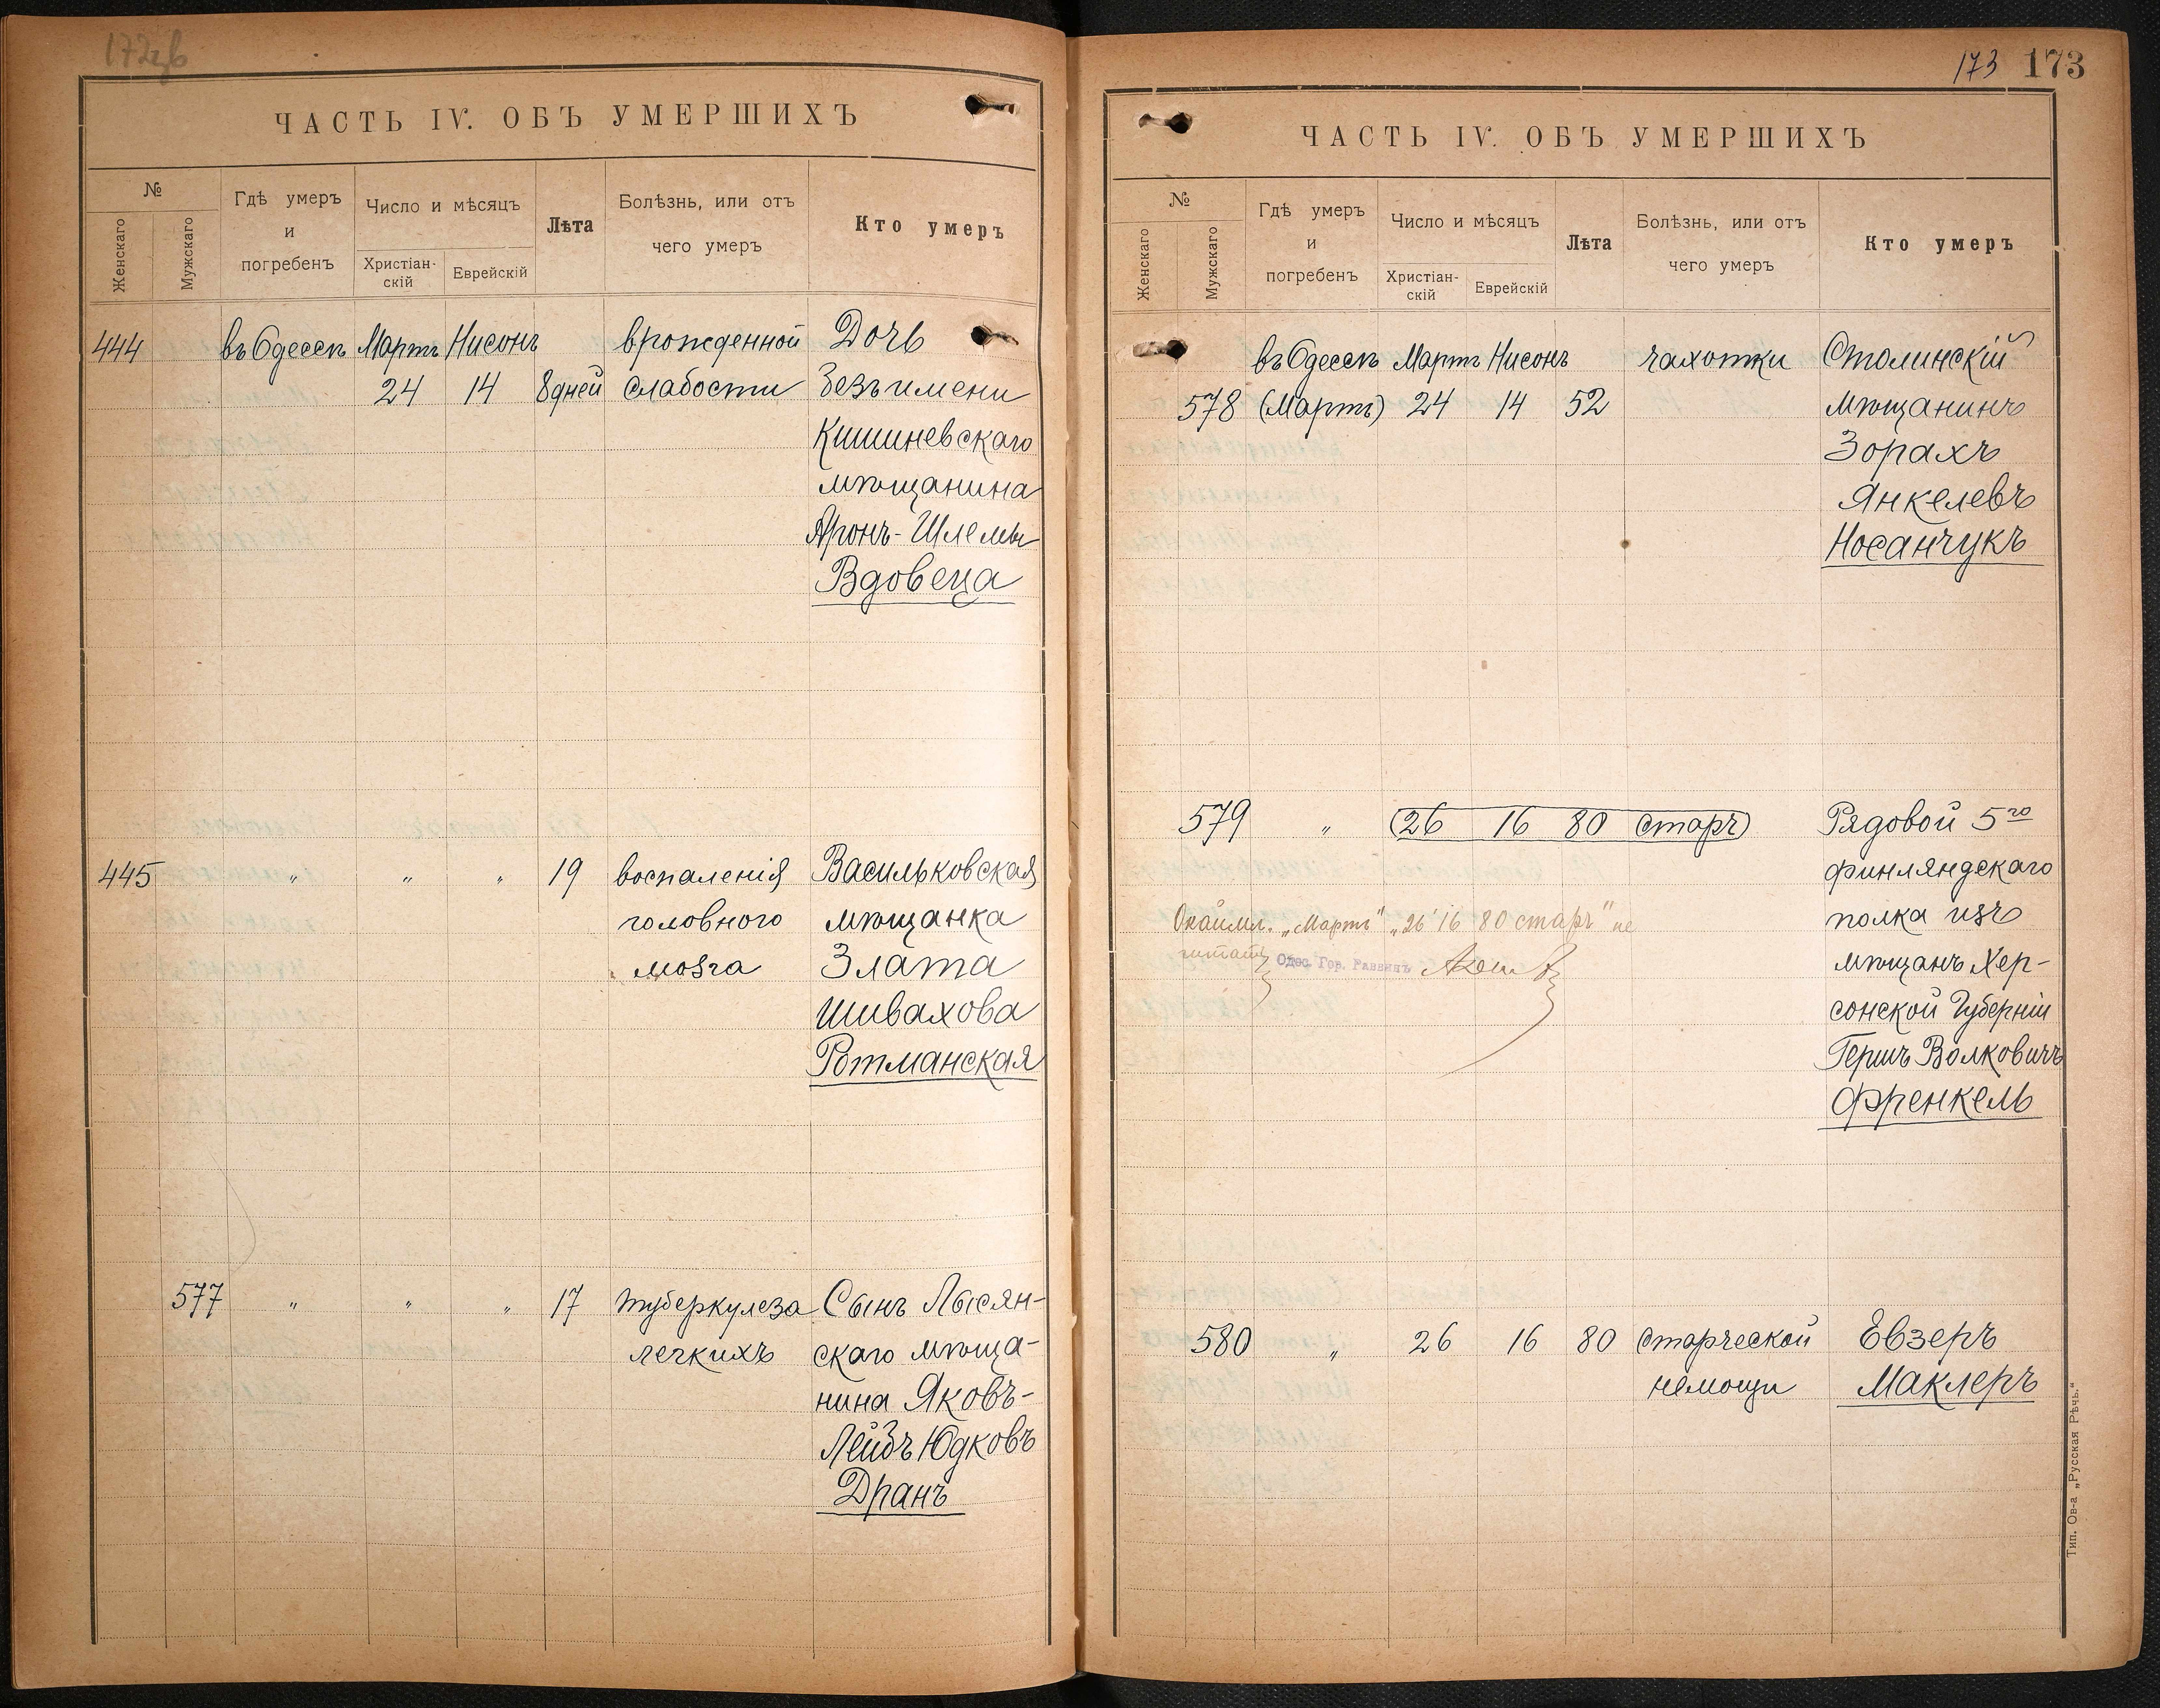 ЧАСТЬ IV. ОБЪ УМЕРШИХЪ
№
Женскаго
Мужскаго
Гдѣ умеръ
и
погребенъ
Число и мѣсяцъ
Христіан-
скій
Еврейскій
Лѣта
Болѣзнь, или отъ
чего умеръ
Кто умеръ
444 въ Одессѣ Мартъ Нисонъ врожденной Дочь
24 14 8 дней слабости безъ имени
Кишиневскаго
мѣщанина
Аронъ-Шлемы
Вдовеца
445 " " " 19 воспаленія Васильковская
головного мѣщанка
мозга Злата
Шивахова
Ротманская
577 " " " 17 туберкулеза Сынъ Лысян-
легкихъ скаго мѣща-
нина Яковъ-
Лейбъ Юдковъ
Дранъ
173 173
ЧАСТЬ IV. ОБЪ УМЕРШИХЪ
№
Женскаго
Мужскаго
Гдѣ умеръ
и
погребенъ
Число и мѣсяцъ
Христіан-
скій
Еврейскій
Лѣта
Болѣзнь, или отъ
чего умеръ
Кто умеръ
въ Одессѣ Мартъ Нисонъ чахотки Столинскій
578 (Мартъ) 24 14 52 мѣщанинъ
Зорахъ
Янкелевъ
Носанчукъ
579 " (26 16 80 старч) Рядовой 5го
финляндскаго
полка изъ
мѣщанъ Хер-
сонской Губерніи
Гершъ Волковичъ
Френкель
Окаймл. „Мартъ" „26 16 80 старч" не
читать Одес. Гор. Раввинъ
580 " 26 16 80 старческой Евзеръ
немощи Маклеръ
Тип. Ов-а „Русская Рѣчь."